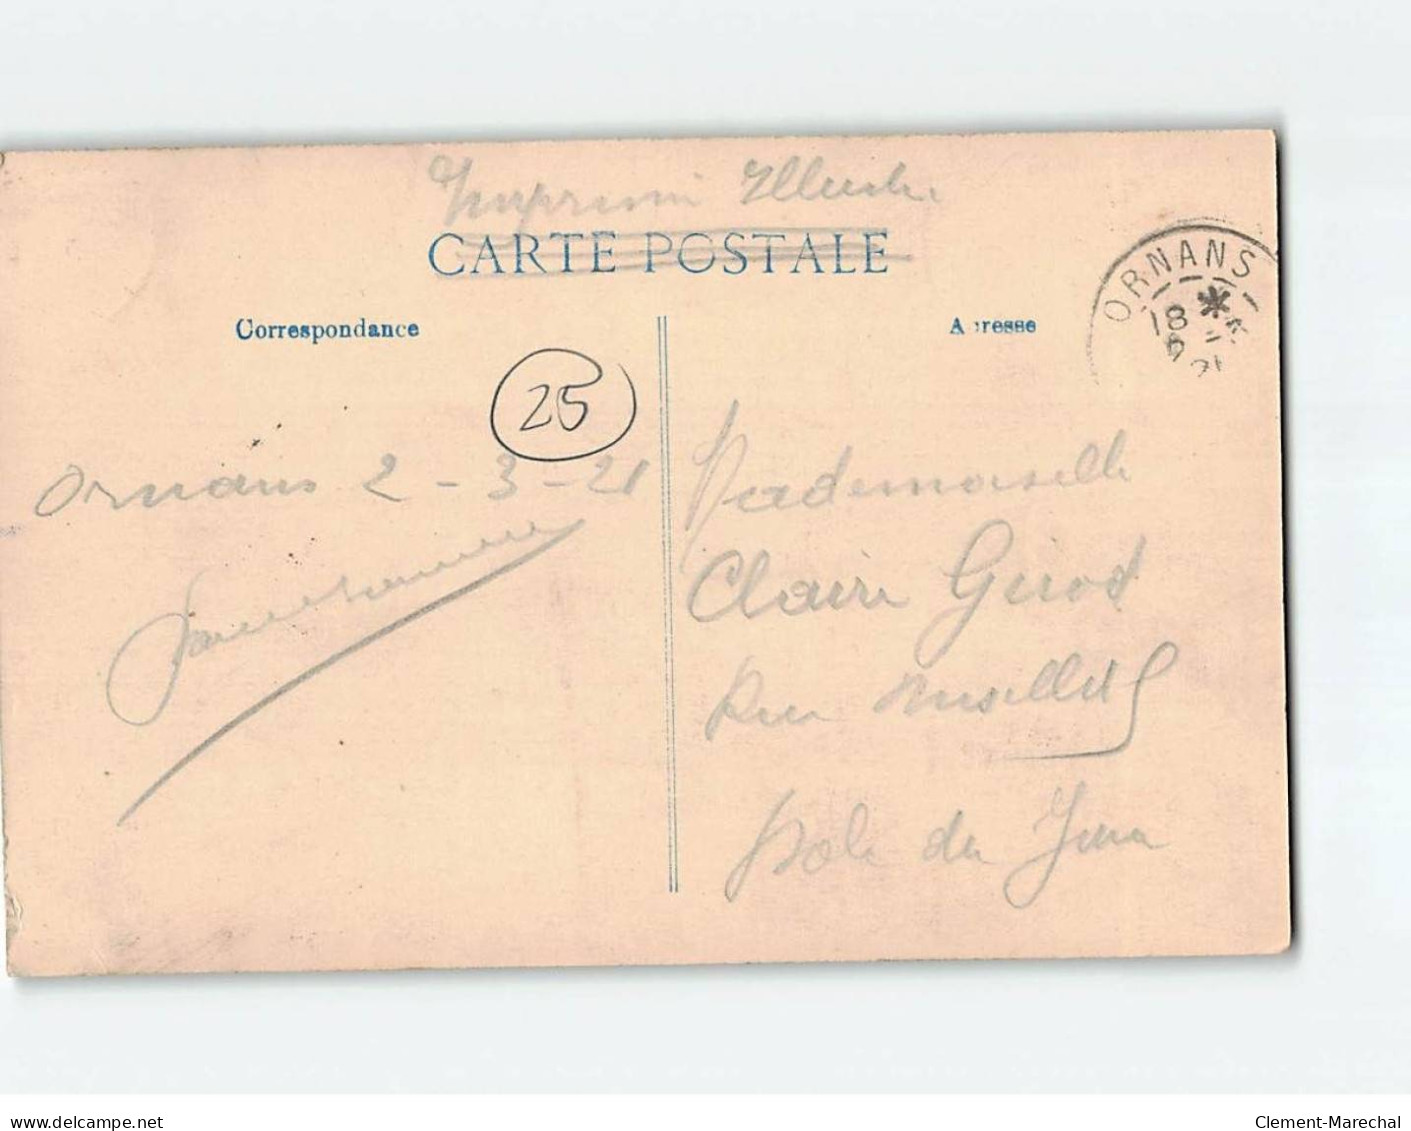 Imprimé Illustré
CARTE POSTALE
Correspondance
A resse
ORNANS
18
25
Ornans 2 - 3 - 21
Mademoiselle
Claire Girod
Rue
Dole du Jura
www.delcampe.net
Clement-Marechal